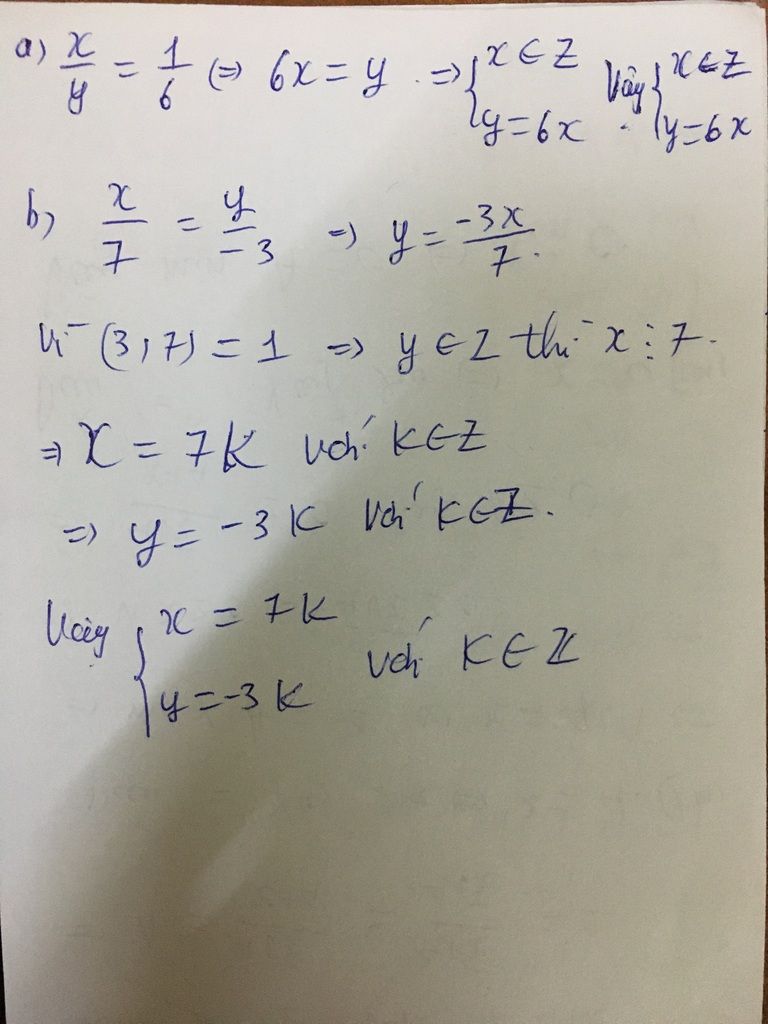 a) x/y = 1/6 (=) 6x = y . => { x ∈ Z ; y = 6x . Vậy { x ∈ Z ; y = 6x
b) x/7 = y/-3 => y = -3x/7 .
Vì (3,7) = 1 => y ∈ Z thì x ⋮ 7 .
=> x = 7k với k ∈ Z
=> y = -3k với k ∈ Z .
Vậy { x = 7k ; y = -3k với k ∈ Z